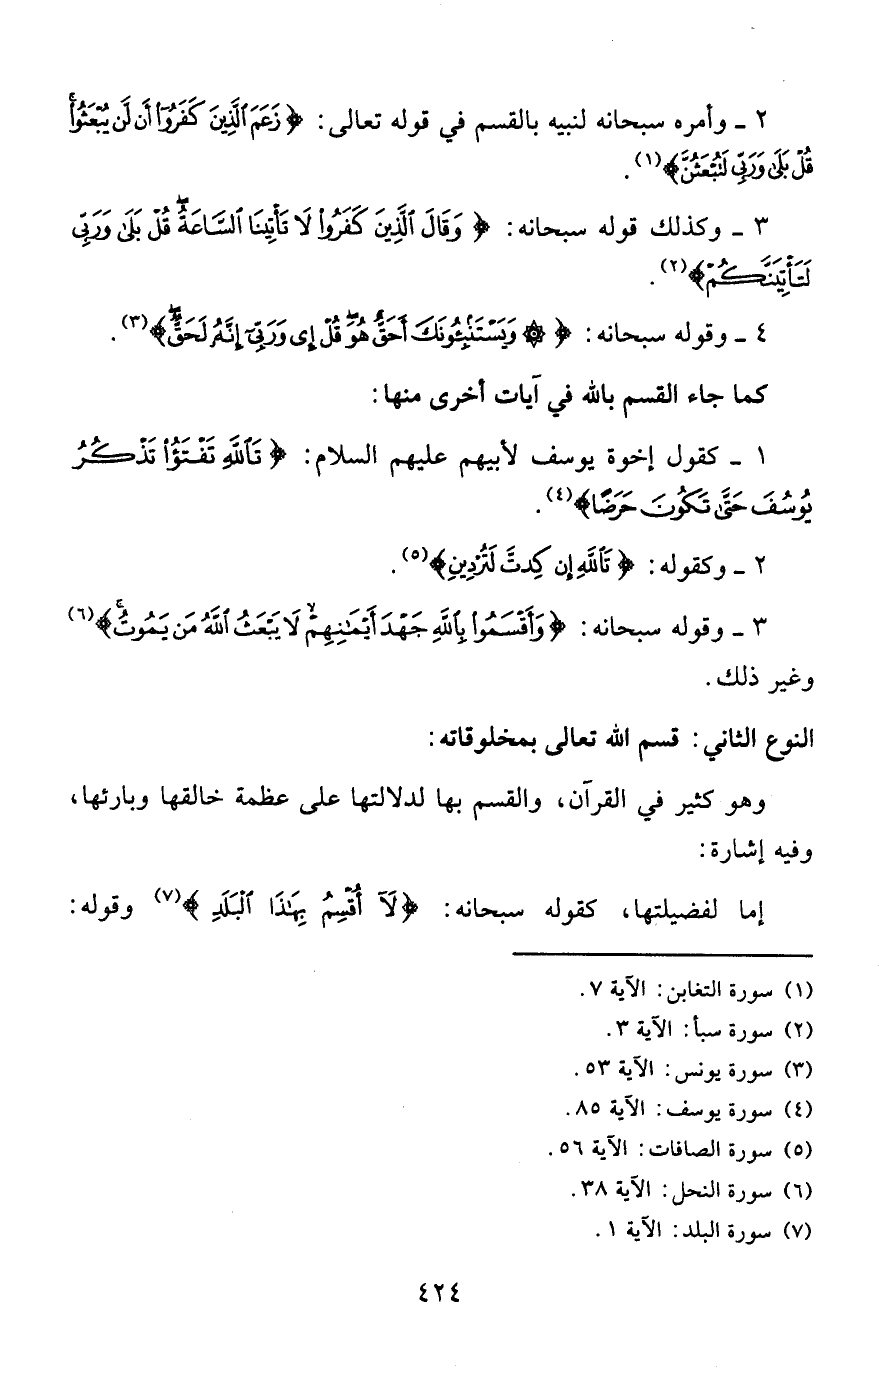 ٢ ـ وأمره سبحانه لنبيه بالقسم في قوله تعالى: ﴿زَعَمَ ٱلَّذِينَ كَفَرُوٓا۟ أَن لَّن يُبْعَثُوا۟ۚ
قُلْ بَلَىٰ وَرَبِّى لَتُبْعَثُنَّ﴾(١).
٣ ـ وكذلك قوله سبحانه: ﴿وَقَالَ ٱلَّذِينَ كَفَرُوا۟ لَا تَأْتِينَا ٱلسَّاعَةُۖ قُلْ بَلَىٰ وَرَبِّى
لَتَأْتِيَنَّكُمْ﴾(٢).
٤ ـ وقوله سبحانه: ﴿۞ وَيَسْتَنۢبِـُٔونَكَ أَحَقٌّ هُوَۖ قُلْ إِى وَرَبِّىٓ إِنَّهُۥ لَحَقٌّۖ﴾(٣).
كما جاء القسم بالله في آيات أخرى منها:
١ ـ كقول إخوة يوسف لأبيهم عليهم السلام: ﴿تَٱللَّهِ تَفْتَؤُا۟ تَذْكُرُ
يُوسُفَ حَتَّىٰ تَكُونَ حَرَضًا﴾(٤).
٢ ـ وكقوله: ﴿تَٱللَّهِ إِن كِدتَّ لَتُرْدِينِ﴾(٥).
٣ ـ وقوله سبحانه: ﴿وَأَقْسَمُوا۟ بِٱللَّهِ جَهْدَ أَيْمَـٰنِهِمْۙ لَا يَبْعَثُ ٱللَّهُ مَن يَمُوتُۚ﴾(٦)
وغير ذلك.
النوع الثاني: قسم الله تعالى بمخلوقاته:
وهو كثير في القرآن، والقسم بها لدلالتها على عظمة خالقها وبارئها،
وفيه إشارة:
إما لفضيلتها، كقوله سبحانه: ﴿لَآ أُقْسِمُ بِهَـٰذَا ٱلْبَلَدِ﴾(٧) وقوله:
(١) سورة التغابن: الآية ٧.
(٢) سورة سبأ: الآية ٣.
(٣) سورة يونس: الآية ٥٣.
(٤) سورة يوسف: الآية ٨٥.
(٥) سورة الصافات: الآية ٥٦.
(٦) سورة النحل: الآية ٣٨.
(٧) سورة البلد: الآية ١.
٤٢٤